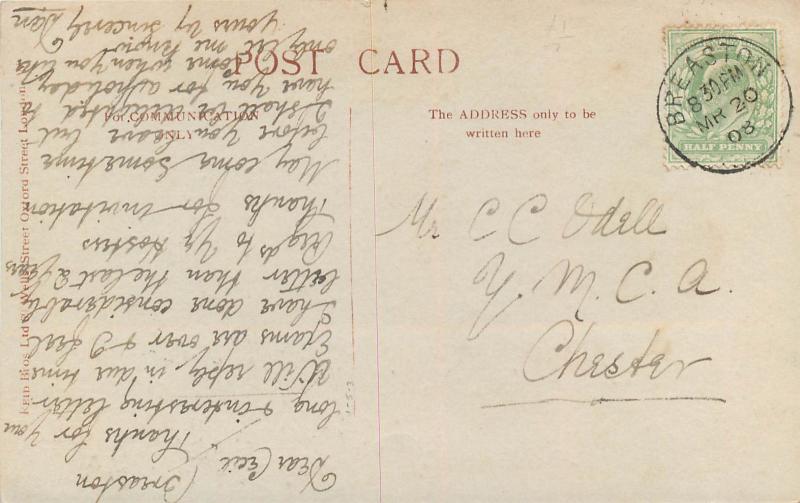 POST CARD
For COMMUNICATION
ONLY
The ADDRESS only to be
written here
BREASTON
8 30 PM
MR 20
08
HALF PENNY
Mr C C Odell
Y. M. C. A.
Chester
Breaston
Dear Cecil
Thanks for your
long & interesting letter
Will reply in due time
Exams are over & I feel
I have done considerably
better than the last 2 years
Regds to Yr
Thanks for invitation
May come sometime
before you leave but
I shall be delighted to
have you for a holiday
come when you like
only let me know
Yours by sincerely Dan
Bros Ltd Wells Street Oxford Street London
1-5-3